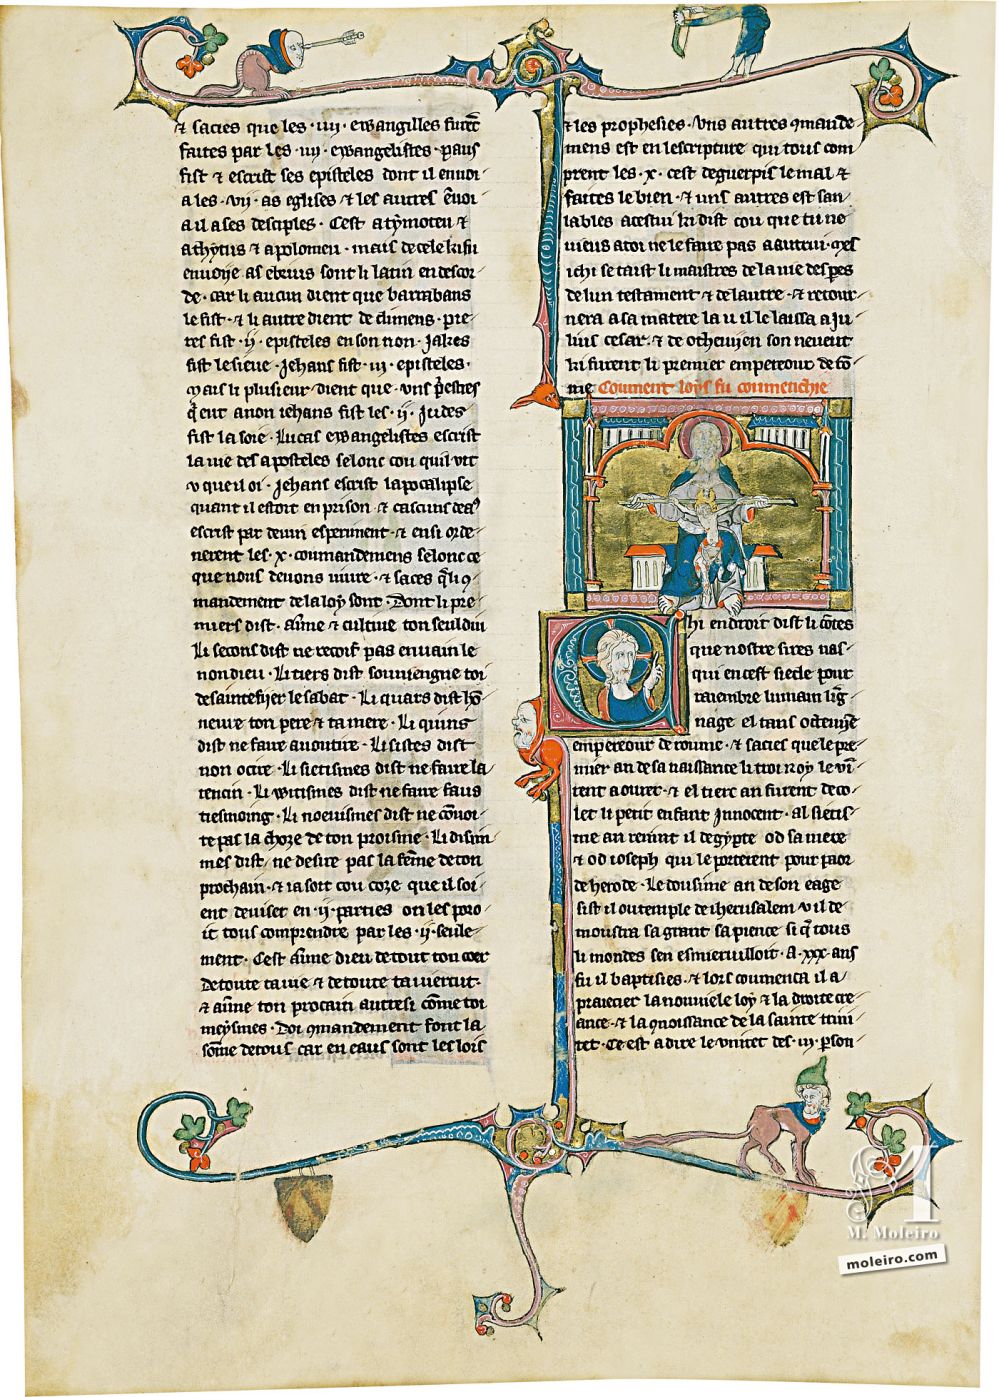 et sacies que les · iiij · ewangilles furẽt
faites par les · iiij · ewangelistes · paus
fist et escrist ses episteles dont il enuoi-
a les · vij · as eglises et les autres ẽuoi
a il a ses desciples · Cest a tymoteu et
a thytus et a polomeu · mais de cele ki fu
enuoije as ebreus sont li latin en descor-
de · car li aucun dient que barrabans
le fist · et li autre dient de climens · pie-
res fist · ij · episteles en son non · Jakes
fist le sieue · Jehans fist · iij · episteles ·
mais li plusieur dient que · vns p̃estres
q̃ ent a non iehans fist les · ij · Judes
fist la soie · Lucas ewangelistes escrist
la uie des aposteles selonc cou quil vit
v que il oi · Jehans escrist lapocalipse
quant il estoit en prison · et cascuns deaꝰ
escrist par deuin esperiment · et ensi orde-
nerent les · x · coumandemens selonc ce
que nous deuons uiure · et saces q̃ li ꝯ
mandement de la loy sont · Dont li pre-
miers dist · Aĩme et cultiue ton seul diu
Li secons dist ne recoif pas en uain le
non dieu · Li tiers dist souuiengne toi
de saintefijer le sabat · Li quars dist hõ-
neure ton pere et ta mere · Li quins
dist ne faire auoutire · Li sistes dist
non ocire · Li sietismes dist ne faire la
rencin · Li witismes dist ne faire faus
tiesmoing · Li noeuismes dist ne cõuoi-
te pas la choze de ton proisme · Li disim
mes dist · ne desire pas la fẽme de ton
prochain · et ia soit cou coze que il soi-
ent deuiset en · ij · parties on les poro-
it tous comprendre par les · ij · seule-
ment · Cest aĩme dieu de tout ton coer
de toute ta uie et de toute ta uiertut ·
et aĩme ton procain autresi cõme toi
meysmes · Doi ꝯmandement font la
sõme de tous car en eaus sont les lois
et les prophesies · Vns autres ꝯmande
mens est en lescripture qui tous com
prent les · x · cest deguerpis le mal et
faites le bien · et uns autres est san-
lables a cestui ki dist cou que tu ne
uieus a toi ne le faire pas a autrui · mes
ichi se taist li maistres de la uie des peres
de lun testament et de lautre · et retour
nera a sa matere la u il le laissa a ju-
lius cesar · et de otheuijen son neueut
ki furent li premier empereour de rõ-
me Coument loys fu coumenchie
Chi en droit dist li cõtes
que nostre sires nas-
qui en cest siecle pour
raiembre lumain lig-
nage el tans octeuije
empereour de roume · et sacies que le pre-
mier an de sa naissance li troi roy le vi-
rent aourer · et el tierc an furent deco-
let li petit enfant Innocent · al sietis-
me an reuint il degypte od sa mere
et od ioseph qui le porterent pour paor
de herode · Le dousime an de son eage
sist il ou temple de iherusalem v il de
moustra sa grant sapience si q̃ tous
li mondes sen esmieruilloit · A · xxx · ans
fu il baptisies · et lors coumenca il a
praiecier la nouuiele loy et la droite cre-
ance · et la ꝯnoissance de la sainte trini-
tet · Ce est a dire le vnitet des · iij · ꝑson-
M. Moleiro
moleiro.com